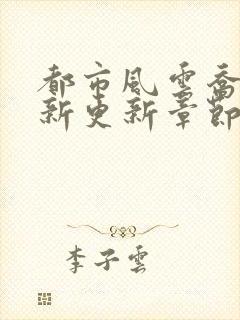 都市風雲喬
新更新章節
李子雲